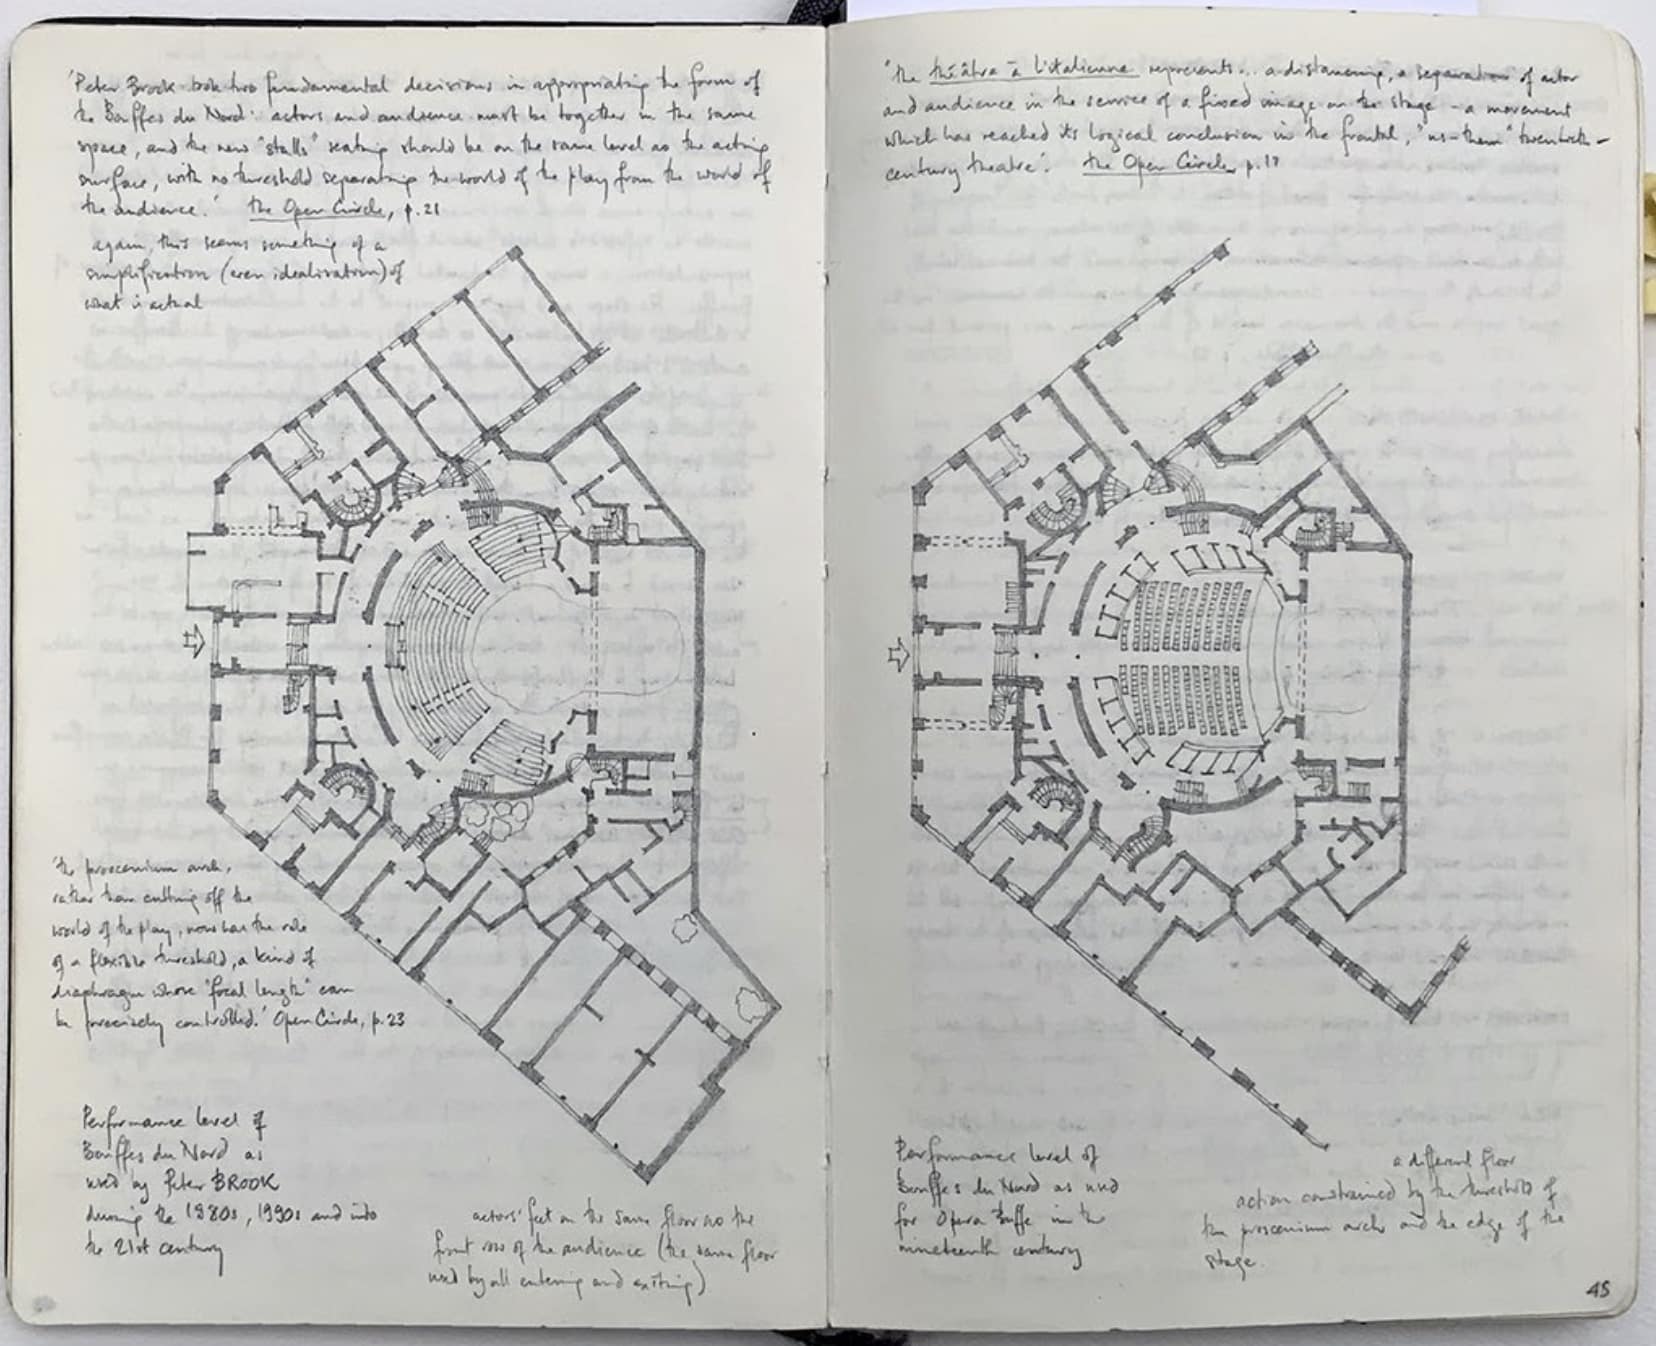 'Peter Brook took two fundamental decisions in appropriating the form of
the Bouffes du Nord: actors and audience must be together in the same
space, and the new "stalls" seating should be on the same level as the acting
surface, with no threshold separating the world of the play from the world of
the audience.' The Open Circle, p.21
again, this seems something of a
simplification (even idealisation) of
what is actual
'the proscenium arch,
rather than cutting off the
world of the play, now has the role
of a flexible threshold, a kind of
diaphragm whose "focal length" can
be precisely controlled.' Open Circle, p.23
Performance level of
Bouffes du Nord as
used by Peter BROOK
during the 1980s, 1990s and into
the 21st century
actors' feet on the same floor as the
front row of the audience (the same floor
used by all entering and exiting)
'the théâtre à l'italienne represents... a distancing, a separation of actor
and audience in the service of a fixed image on the stage – a movement
which has reached its logical conclusion in the frontal, "us-them" twentieth-
century theatre'. The Open Circle, p.17
Performance level of
Bouffes du Nord as used
for Opera Buffe in the
nineteenth century
a different floor
action constrained by the threshold of
the proscenium arch and the edge of the
stage.
45